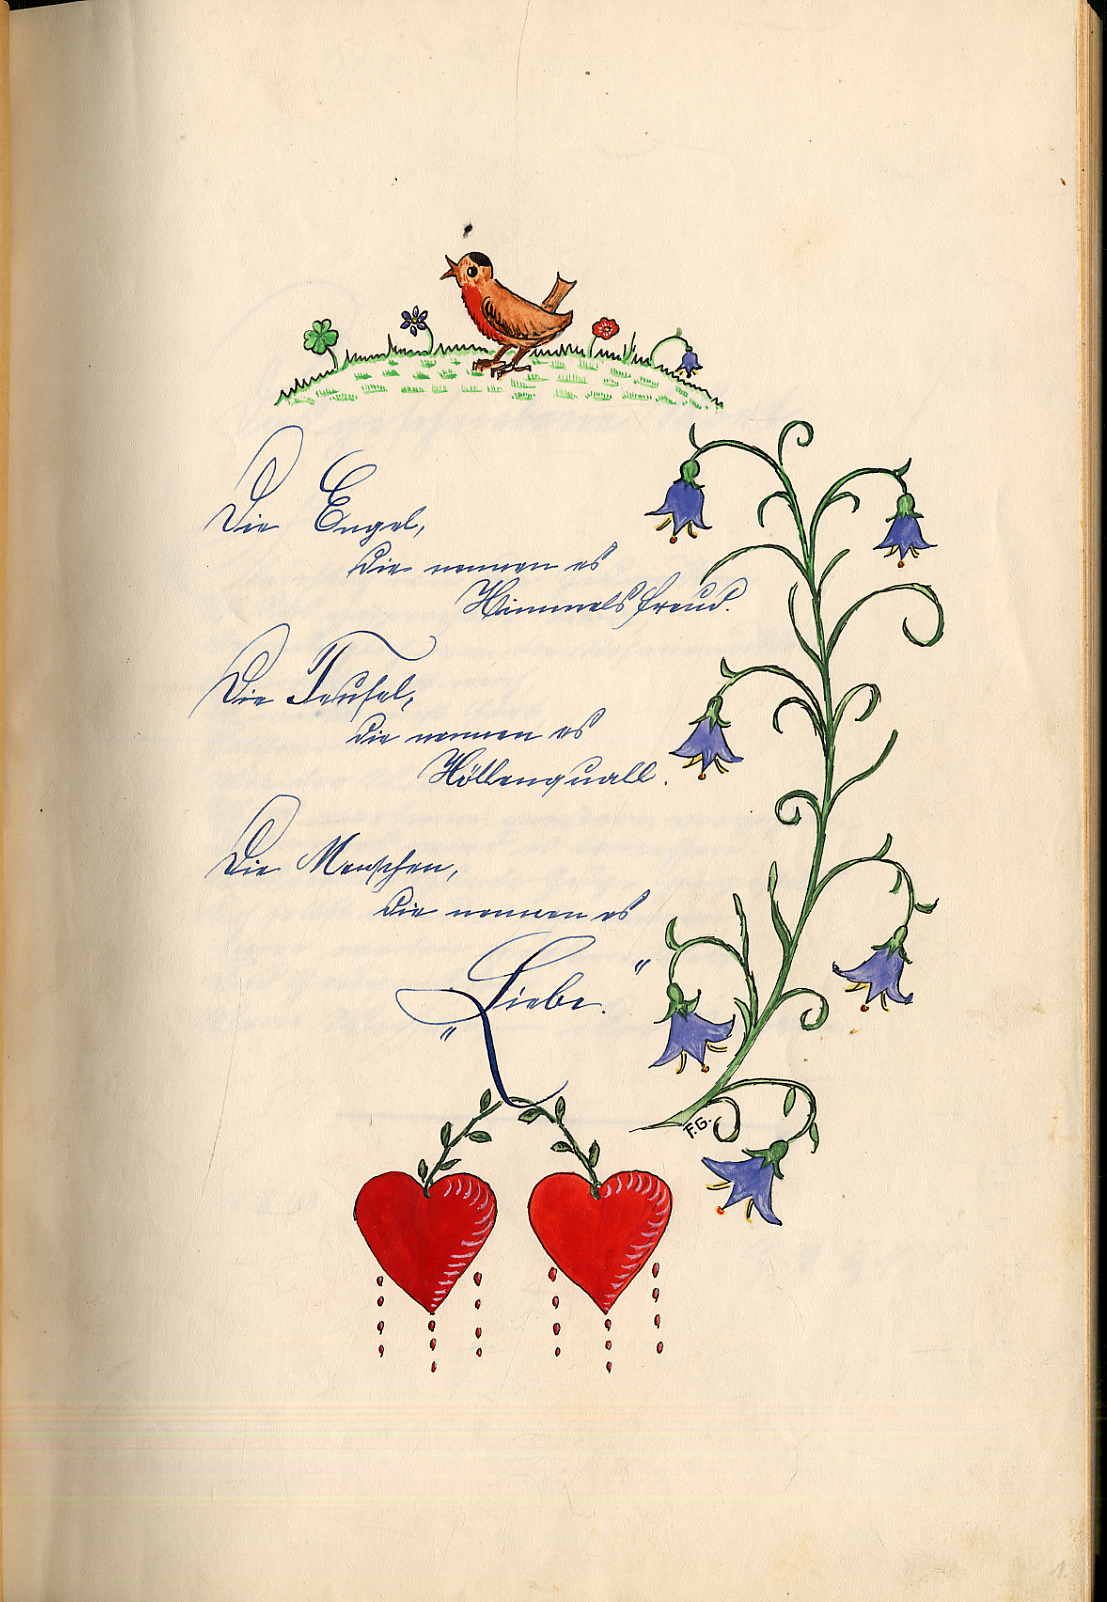 Die Engel,
die nennen es
Himmelsfreud.
Die Teufel,
die nennen es
Höllenquall.
Die Menschen,
die nennen es
„Liebe.“
F.G.